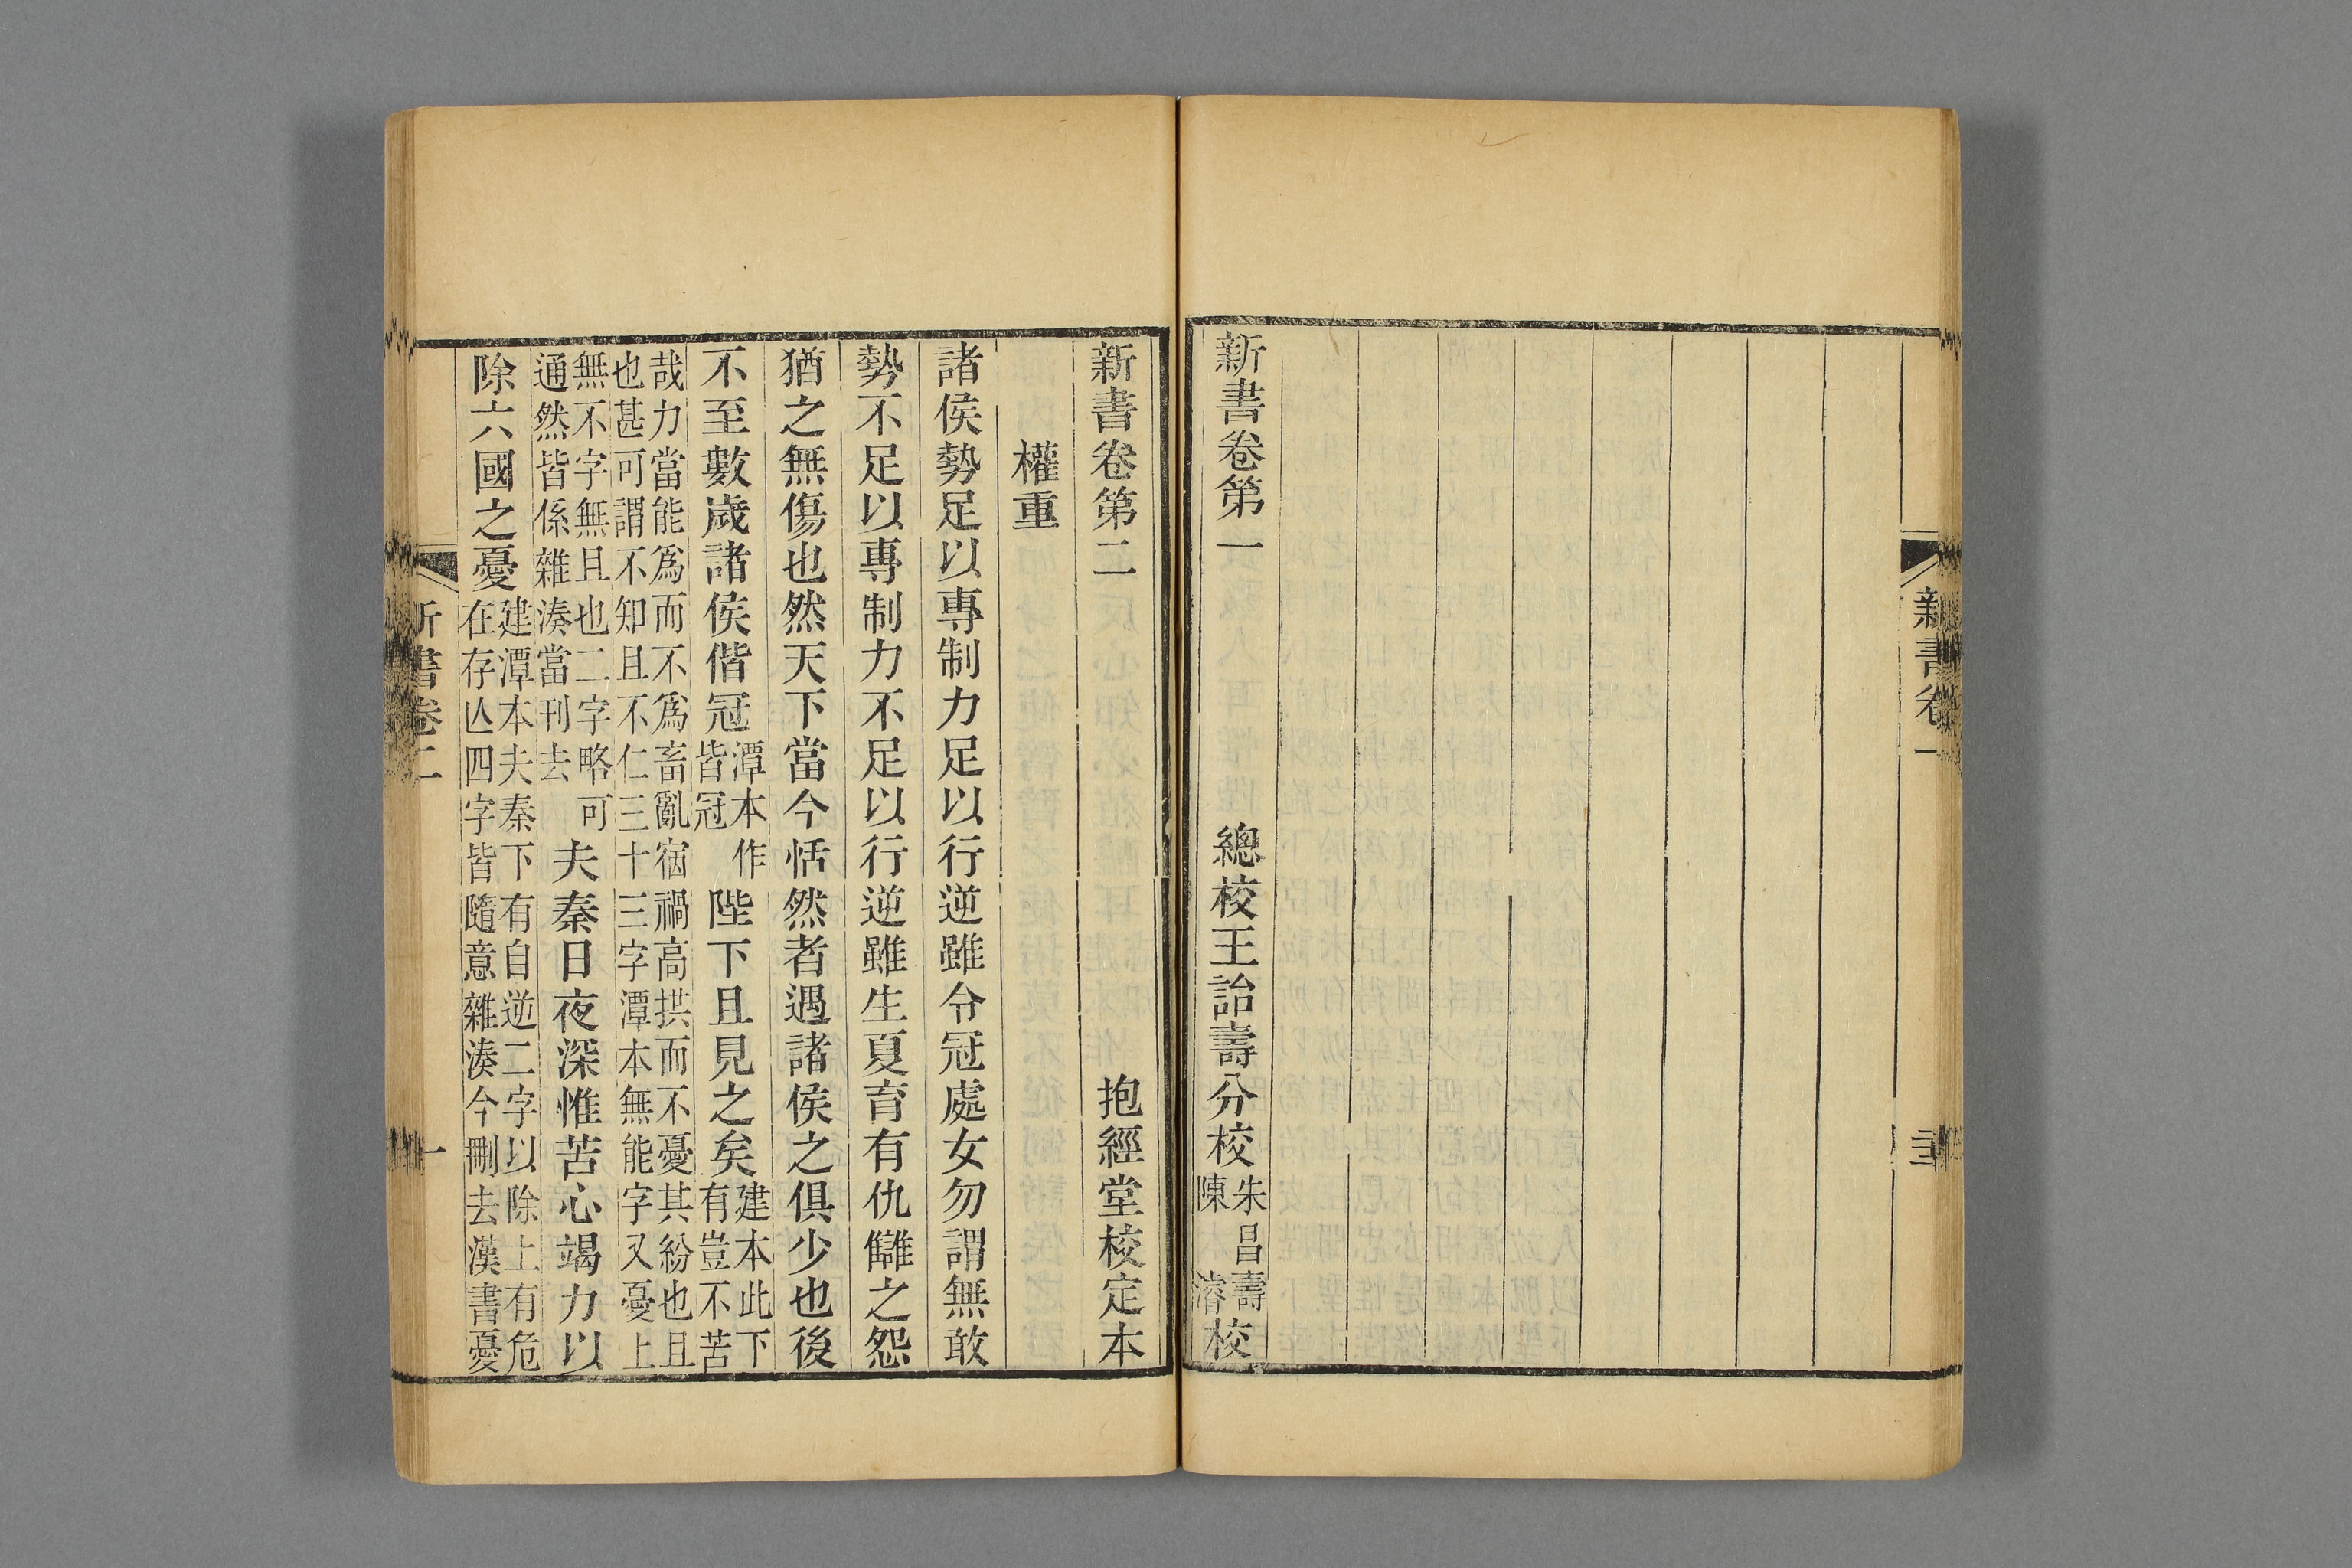 新書卷一
新書卷第一 總校王詒壽分校朱昌壽陳濬校
新書卷第二 抱經堂校定本
權重
諸侯勢足以專制力足以行逆雖令冠處女勿謂無敢
勢不足以專制力不足以行逆雖生夏育有仇讎之怨
猶之無傷也然天下當今恬然者遇諸侯之俱少也後
不至數歲諸侯偕冠潭本作皆冠陛下且見之矣建本此下有豈不苦
哉力當能爲而不爲畜亂宿禍高拱而不憂其紛也且
也甚可謂不知且不仁三十三字潭本無能字又憂上
無不字無且也二字略可
通然皆係雜湊當刊去
夫秦日夜深惟苦心竭力以
除六國之憂建潭本夫秦下有自逆二字以除上有危
在存亾四字皆隨意雜湊今刪去漢書憂
新書卷二 一